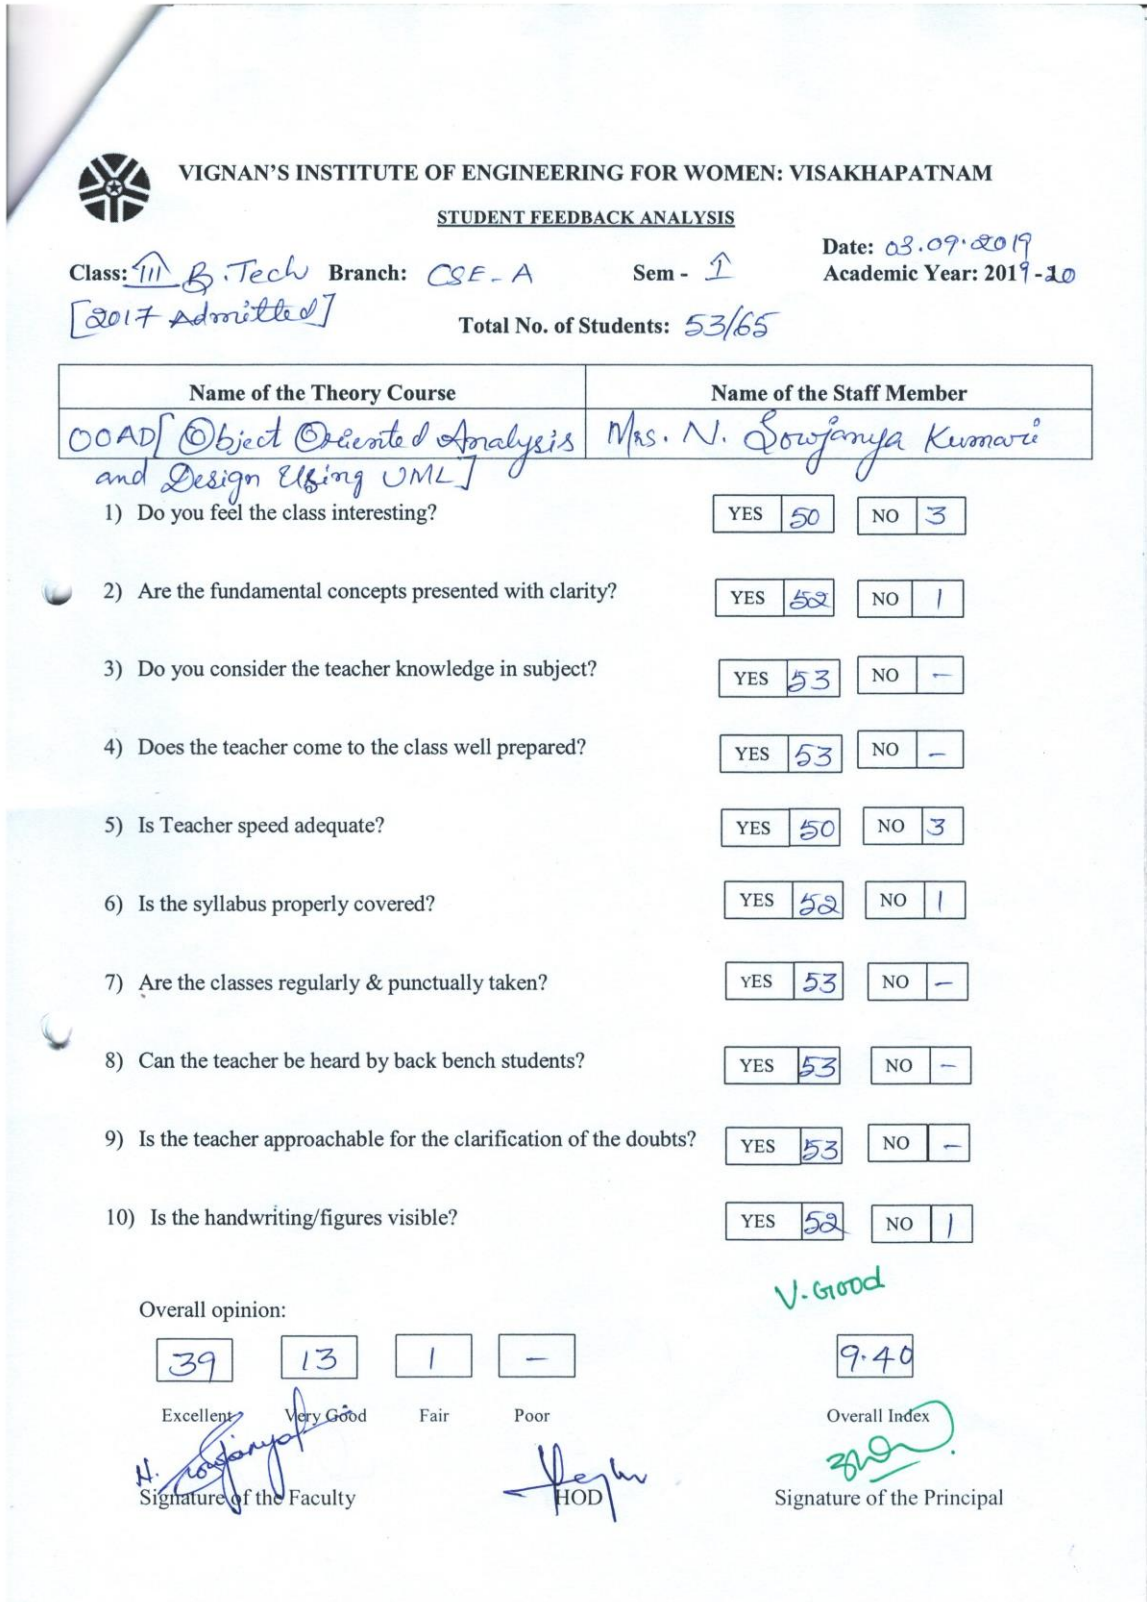 VIGNAN'S INSTITUTE OF ENGINEERING FOR WOMEN: VISAKHAPATNAM
STUDENT FEEDBACK ANALYSIS
Date: 03.09.2019
Class: III B.Tech Branch: CSE-A Sem - I Academic Year: 2019-20
[2017 Admitted]
Total No. of Students: 53/65
Name of the Theory Course Name of the Staff Member
OOAD[Object Oriented Analysis Mrs. N. Sowjanya Kumari
and Design Using UML]
1) Do you feel the class interesting? YES 50 NO 3
2) Are the fundamental concepts presented with clarity? YES 52 NO 1
3) Do you consider the teacher knowledge in subject? YES 53 NO -
4) Does the teacher come to the class well prepared? YES 53 NO -
5) Is Teacher speed adequate? YES 50 NO 3
6) Is the syllabus properly covered? YES 52 NO 1
7) Are the classes regularly & punctually taken? YES 53 NO -
8) Can the teacher be heard by back bench students? YES 53 NO -
9) Is the teacher approachable for the clarification of the doubts? YES 53 NO -
10) Is the handwriting/figures visible? YES 52 NO 1
V. Good
Overall opinion:
39 13 1 - 9.40
Excellent Very Good Fair Poor Overall Index
N. Sowjanya
Signature of the Faculty HOD Signature of the Principal